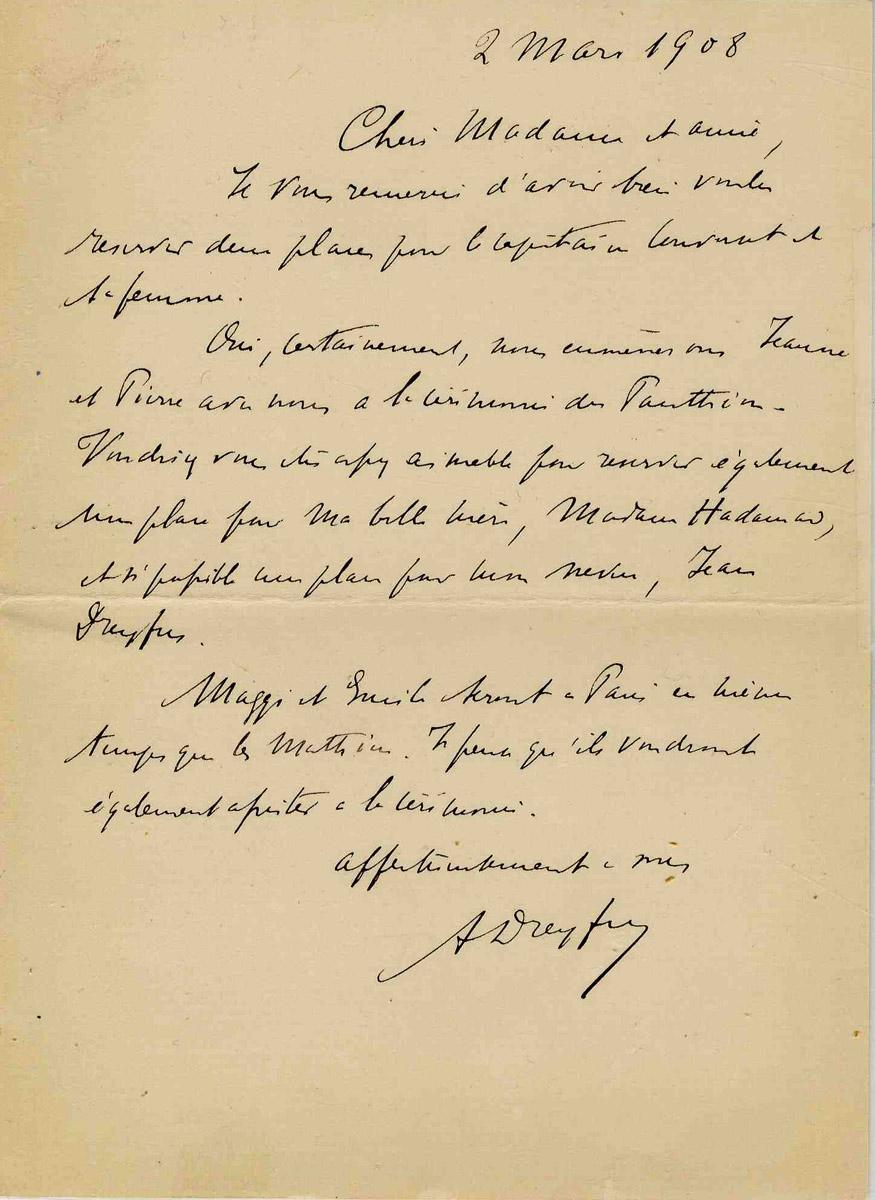 2 Mars 1908
Chère Madame et amie,
Je vous remercie d'avoir bien voulu
réserver deux places pour le capitaine et
sa femme.
Oui, certainement, nous emmènerons Jeanne
et Pierre avec nous à la cérémonie du Panthéon.
Voudriez vous être assez aimable pour réserver également
une place pour ma belle mère, Madame Hadamard,
et si possible une place pour mon neveu, Jean
Dreyfus.
Maggi et Emile seront à Paris en même
temps que les Mathieu. Je pense qu'ils voudront
également assister à la cérémonie.
affectueusement à vous
A Dreyfus